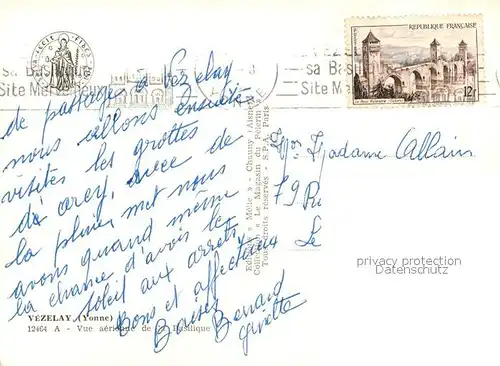 sa Bas
Site Me
sa Bas
Site M
REPUBLIQUE FRANÇAISE
12f
de passage à Vezelay
nous allons ensuite
visiter les grottes
d'arcy, avec de
la pluie, mais nous
avons quand même
la chance d'avoir le
soleil aux arrets
Bons et affectueux
Baisers Bernard
Ginette
Madame Callain
79 Ru
Le
Editions « Mélie » - Chauny (Aisne)
Collection « Le Magasin du Pèlerin »
Tous droits réservés - S.P. Paris
privacy protection
Datenschutz
VÉZELAY (Yonne)
12464 A - Vue aérienne de la Basilique